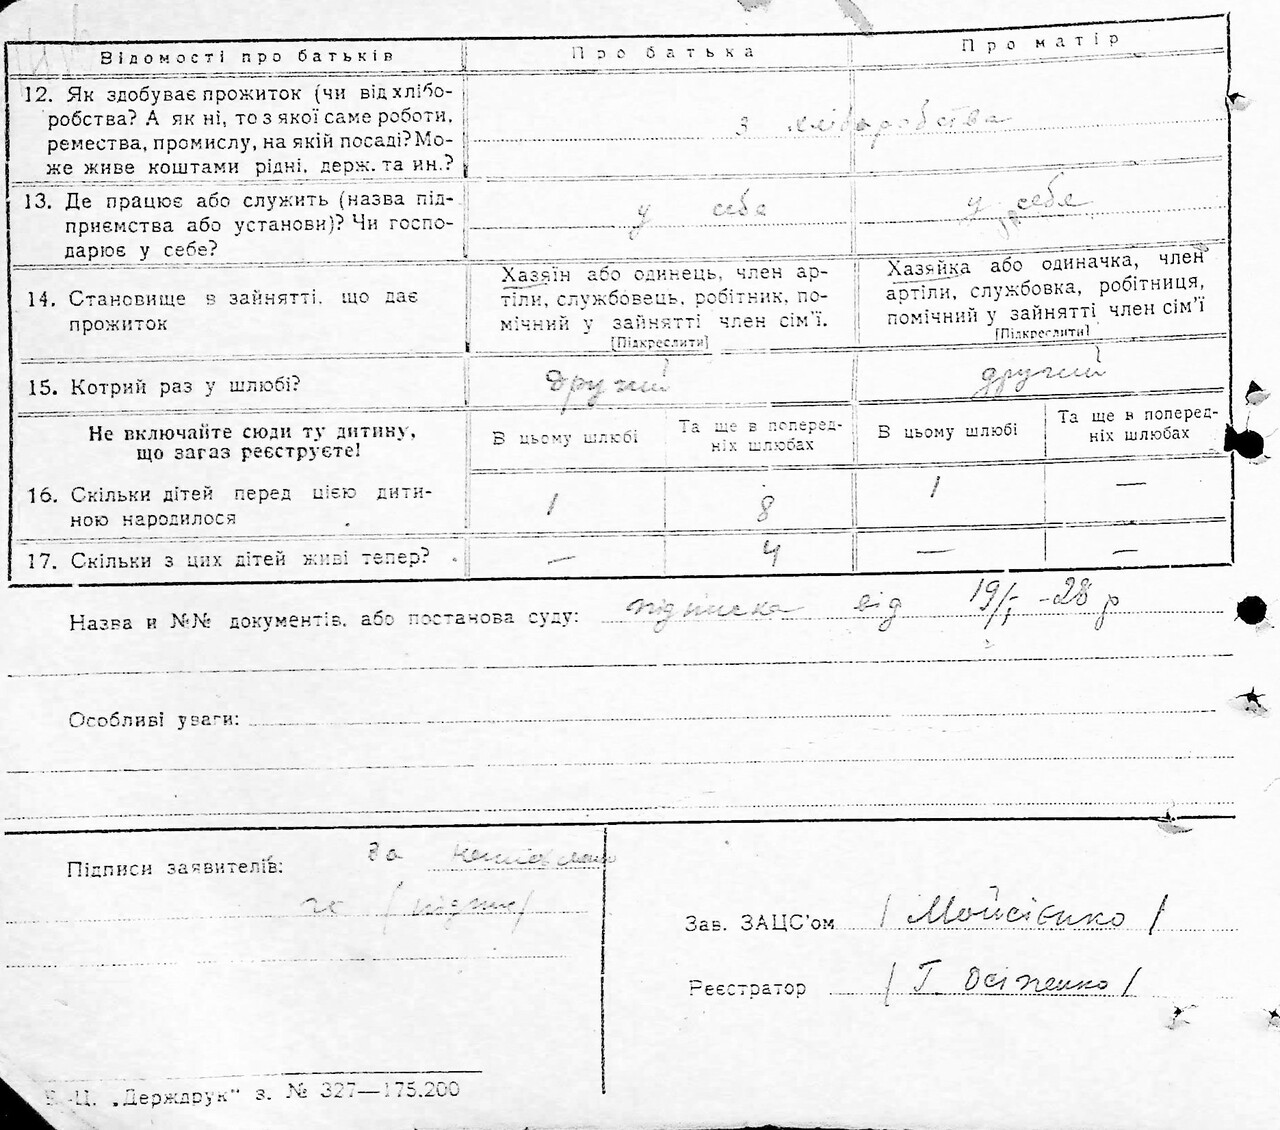 Відомості про батьків Про батька Про матір
12. Як здобуває прожиток (чи від хлібо-
робства? А як ні, то з якої саме роботи,
ремества, промислу, на якій посаді? Мо-
же живе коштами рідні, держ. та ин.?
з хліборобства
13. Де працює або служить (назва під-
приємства або установи)? Чи госпо-
дарює у себе?
у себе
у себе
14. Становище в зайнятті, що дає
прожиток
Хазяїн або одинець, член ар-
тіли, службовець, робітник, по-
мічний у зайнятті член сім'ї.
[Підкреслити]
Хазяйка або одиначка, член
артіли, службовка, робітниця,
помічний у зайнятті член сім'ї
[Підкреслити]
15. Котрий раз у шлюбі? другий другий
Не включайте сюди ту дитину,
що загаз реєструєте!
В цьому шлюбі
Та ще в поперед-
ніх шлюбах
В цьому шлюбі
Та ще в поперед-
ніх шлюбах
16. Скільки дітей перед цією дити-
ною народилося
1 8 1 —
17. Скільки з цих дітей живі тепер? — 4 — —
Назва и №№ документів, або постанова суду: підписка від 19/, -28 р
Особливі уваги:
Підписи заявителів: За
/підпис/
Зав. ЗАЦС'ом /Мойсієнко/
Реєстратор /Г. Осіпенко/
-Ц. „Держдрук" з. № 327—175.200